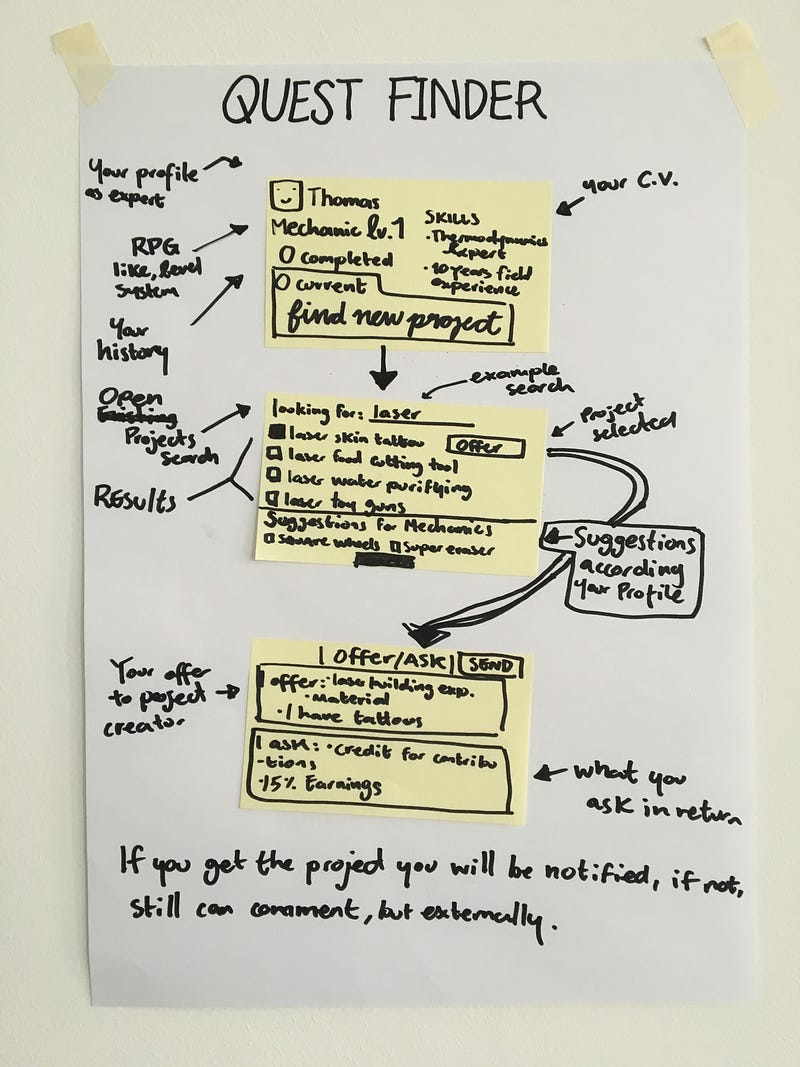 QUEST FINDER
Your profile
as expert
your C.V.
Thomas
Mechanic lv.1
0 completed
0 current
SKILLS
·Thermodynamics
Expert
·10 years field
experience
find new project
RPG
like, level
system
Your
history
example
search
Open
Existing
Projects
search
Results
looking for: laser
laser skin tattoo
Offer
laser food cutting tool
laser water purifying
laser toy guns
Suggestions for Mechanics
square wheels
super eraser
Project
selected
Suggestions
according
your Profile
Your offer
to project
creator
I Offer/ASK
SEND
I offer: ·laser building exp.
·Material
·I have tattous
I ask: ·Credit for contribu
-tions
·15% Earnings
what you
ask in return
If you get the project you will be notified, if not,
still can comment, but externally.